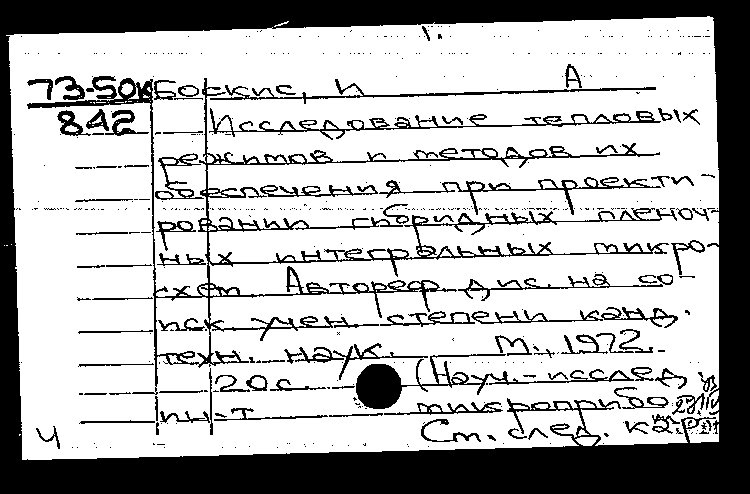 1.
73-50к Боскис, И А
842 Исследование тепловых
режимов и методов их
обеспечения при проекти-
ровании гибридных пленоч-
ных интегральных микро-
схем. Автореф. дис. на со-
иск. учен. степени канд.
техн. наук. М., 1972.
20 с. (Науч.-исслед.
ин-т микроприбо
Ст. след. кар
ч